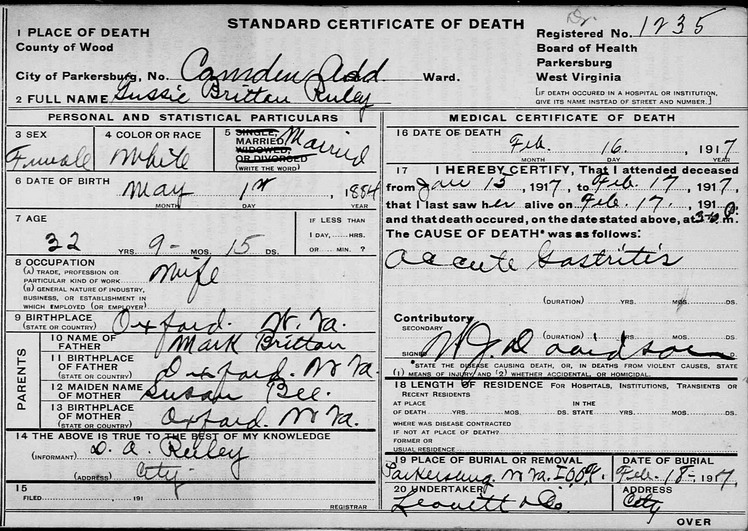 STANDARD CERTIFICATE OF DEATH
Dr.
1 PLACE OF DEATH
County of Wood
Registered No. 1235
Board of Health
Parkersburg
West Virginia
City of Parkersburg, No. Camden Add Ward.
[IF DEATH OCCURED IN A HOSPITAL OR INSTITUTION,
GIVE ITS NAME INSTEAD OF STREET AND NUMBER.]
2 FULL NAME Gussie Britton Ruley
PERSONAL AND STATISTICAL PARTICULARS
3 SEX
Female
4 COLOR OR RACE
White
5 SINGLE,
MARRIED,
WIDOWED,
OR DIVORCED
(WRITE THE WORD)
Married
6 DATE OF BIRTH
May 1st, 1884
MONTH DAY YEAR
7 AGE
32 YRS. 9- MOS. 15 DS.
IF LESS THAN
1 DAY,.....HRS.
OR ..... MIN. ?
8 OCCUPATION
(A) TRADE, PROFESSION OR
PARTICULAR KIND OF WORK
(B) GENERAL NATURE OF INDUSTRY,
BUSINESS, OR ESTABLISHMENT IN
WHICH EMPLOYED (OR EMPLOYER)
Wife
9 BIRTHPLACE
(STATE OR COUNTRY)
Oxford. W. Va.
PARENTS
10 NAME OF
FATHER
Mark Britton
11 BIRTHPLACE
OF FATHER
(STATE OR COUNTRY)
Oxford. W Va.
12 MAIDEN NAME
OF MOTHER
Susan Bee.
13 BIRTHPLACE
OF MOTHER
(STATE OR COUNTRY)
Oxford. W Va
14 THE ABOVE IS TRUE TO THE BEST OF MY KNOWLEDGE
(INFORMANT) D. A. Ruley
(ADDRESS) City
15
FILED................, 191
REGISTRAR
MEDICAL CERTIFICATE OF DEATH
16 DATE OF DEATH
Feb. 16. 1917
MONTH DAY YEAR
17 I HEREBY CERTIFY, That I attended deceased
from Jan 15, 1917, to Feb. 17, 1917,
that I last saw her alive on Feb. 17., 191
and that death occured, on the date stated above, at 3-60 P.m.
The CAUSE OF DEATH* was as follows:
Accute Gastritis
(DURATION) YRS. MOS. DS.
Contributory
SECONDARY
(DURATION) YRS. MOS. DS.
SIGNED W J. Davidson
*STATE THE DISEASE CAUSING DEATH, OR, IN DEATHS FROM VIOLENT CAUSES, STATE
(1) MEANS OF INJURY AND (2) WHETHER ACCIDENTAL OR HOMICIDAL.
18 LENGTH OF RESIDENCE FOR HOSPITALS, INSTITUTIONS, TRANSIENTS OR
RECENT RESIDENTS
AT PLACE IN THE
OF DEATH.......YRS.......MOS.......DS. STATE.......YRS.......MOS.......DS.
WHERE WAS DISEASE CONTRACTED
IF NOT AT PLACE OF DEATH?
FORMER OR
USUAL RESIDENCE
19 PLACE OF BURIAL OR REMOVAL
Parkersburg W Va. I.O.O.F.
DATE OF BURIAL
Feb. 18- 1917.
20 UNDERTAKER
Leavitt & Co.
ADDRESS
City
OVER